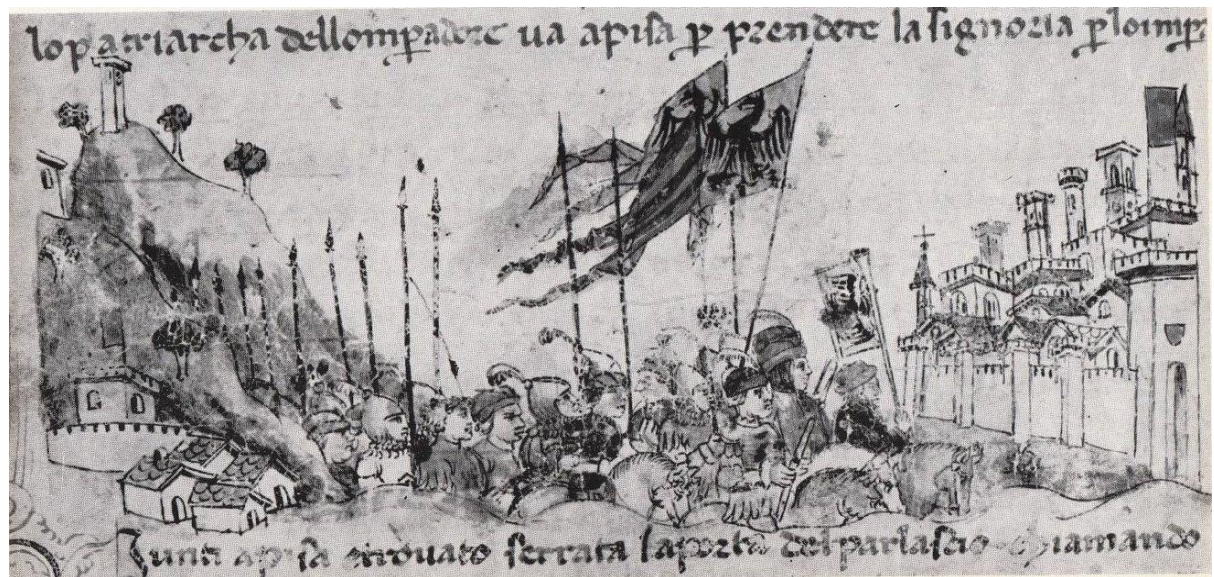 lo patriarcha dellomperadore va apisa p prendere la signoria p loimp
Junti apisa etrovato serrata laporta del parlascio chiamando